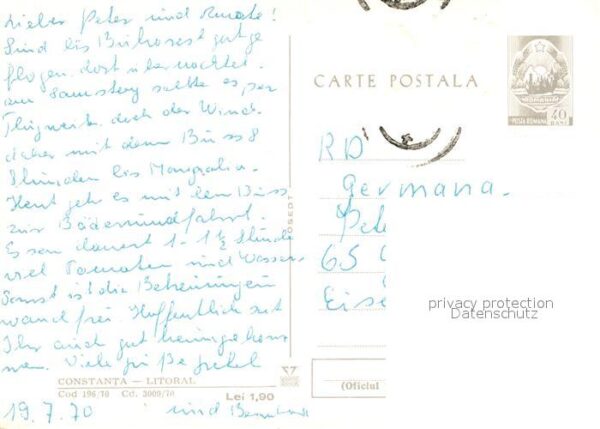 Lieber Peter und Renate!
Sind bis Bukarest gut ge
flogen, dort übernachtet.
am Samstag sollte es per
Flugwerk doch der Wind.
daher mit dem Buss 8
Stunden bis Mangalia.
Heut geh es mit dem Buss
zur Bäderrundfahrt.
Essen dauert 1 - 1½ Stunde
viel Tomaten und Wasser
Sonst ist die
wand frei. Hoffentlich seit
Ihr auch gut heimgekom
men. Viele
und
19.7.70
CONSTANȚA — LITORAL
Cod 196/70 Cd. 3009/70
Lei 1,90
CARTE POSTALA
POSTA ROMANA
40
BANI
RD
Germana.
Pete
65
Eise
(Oficiul
privacy protection
Datenschutz